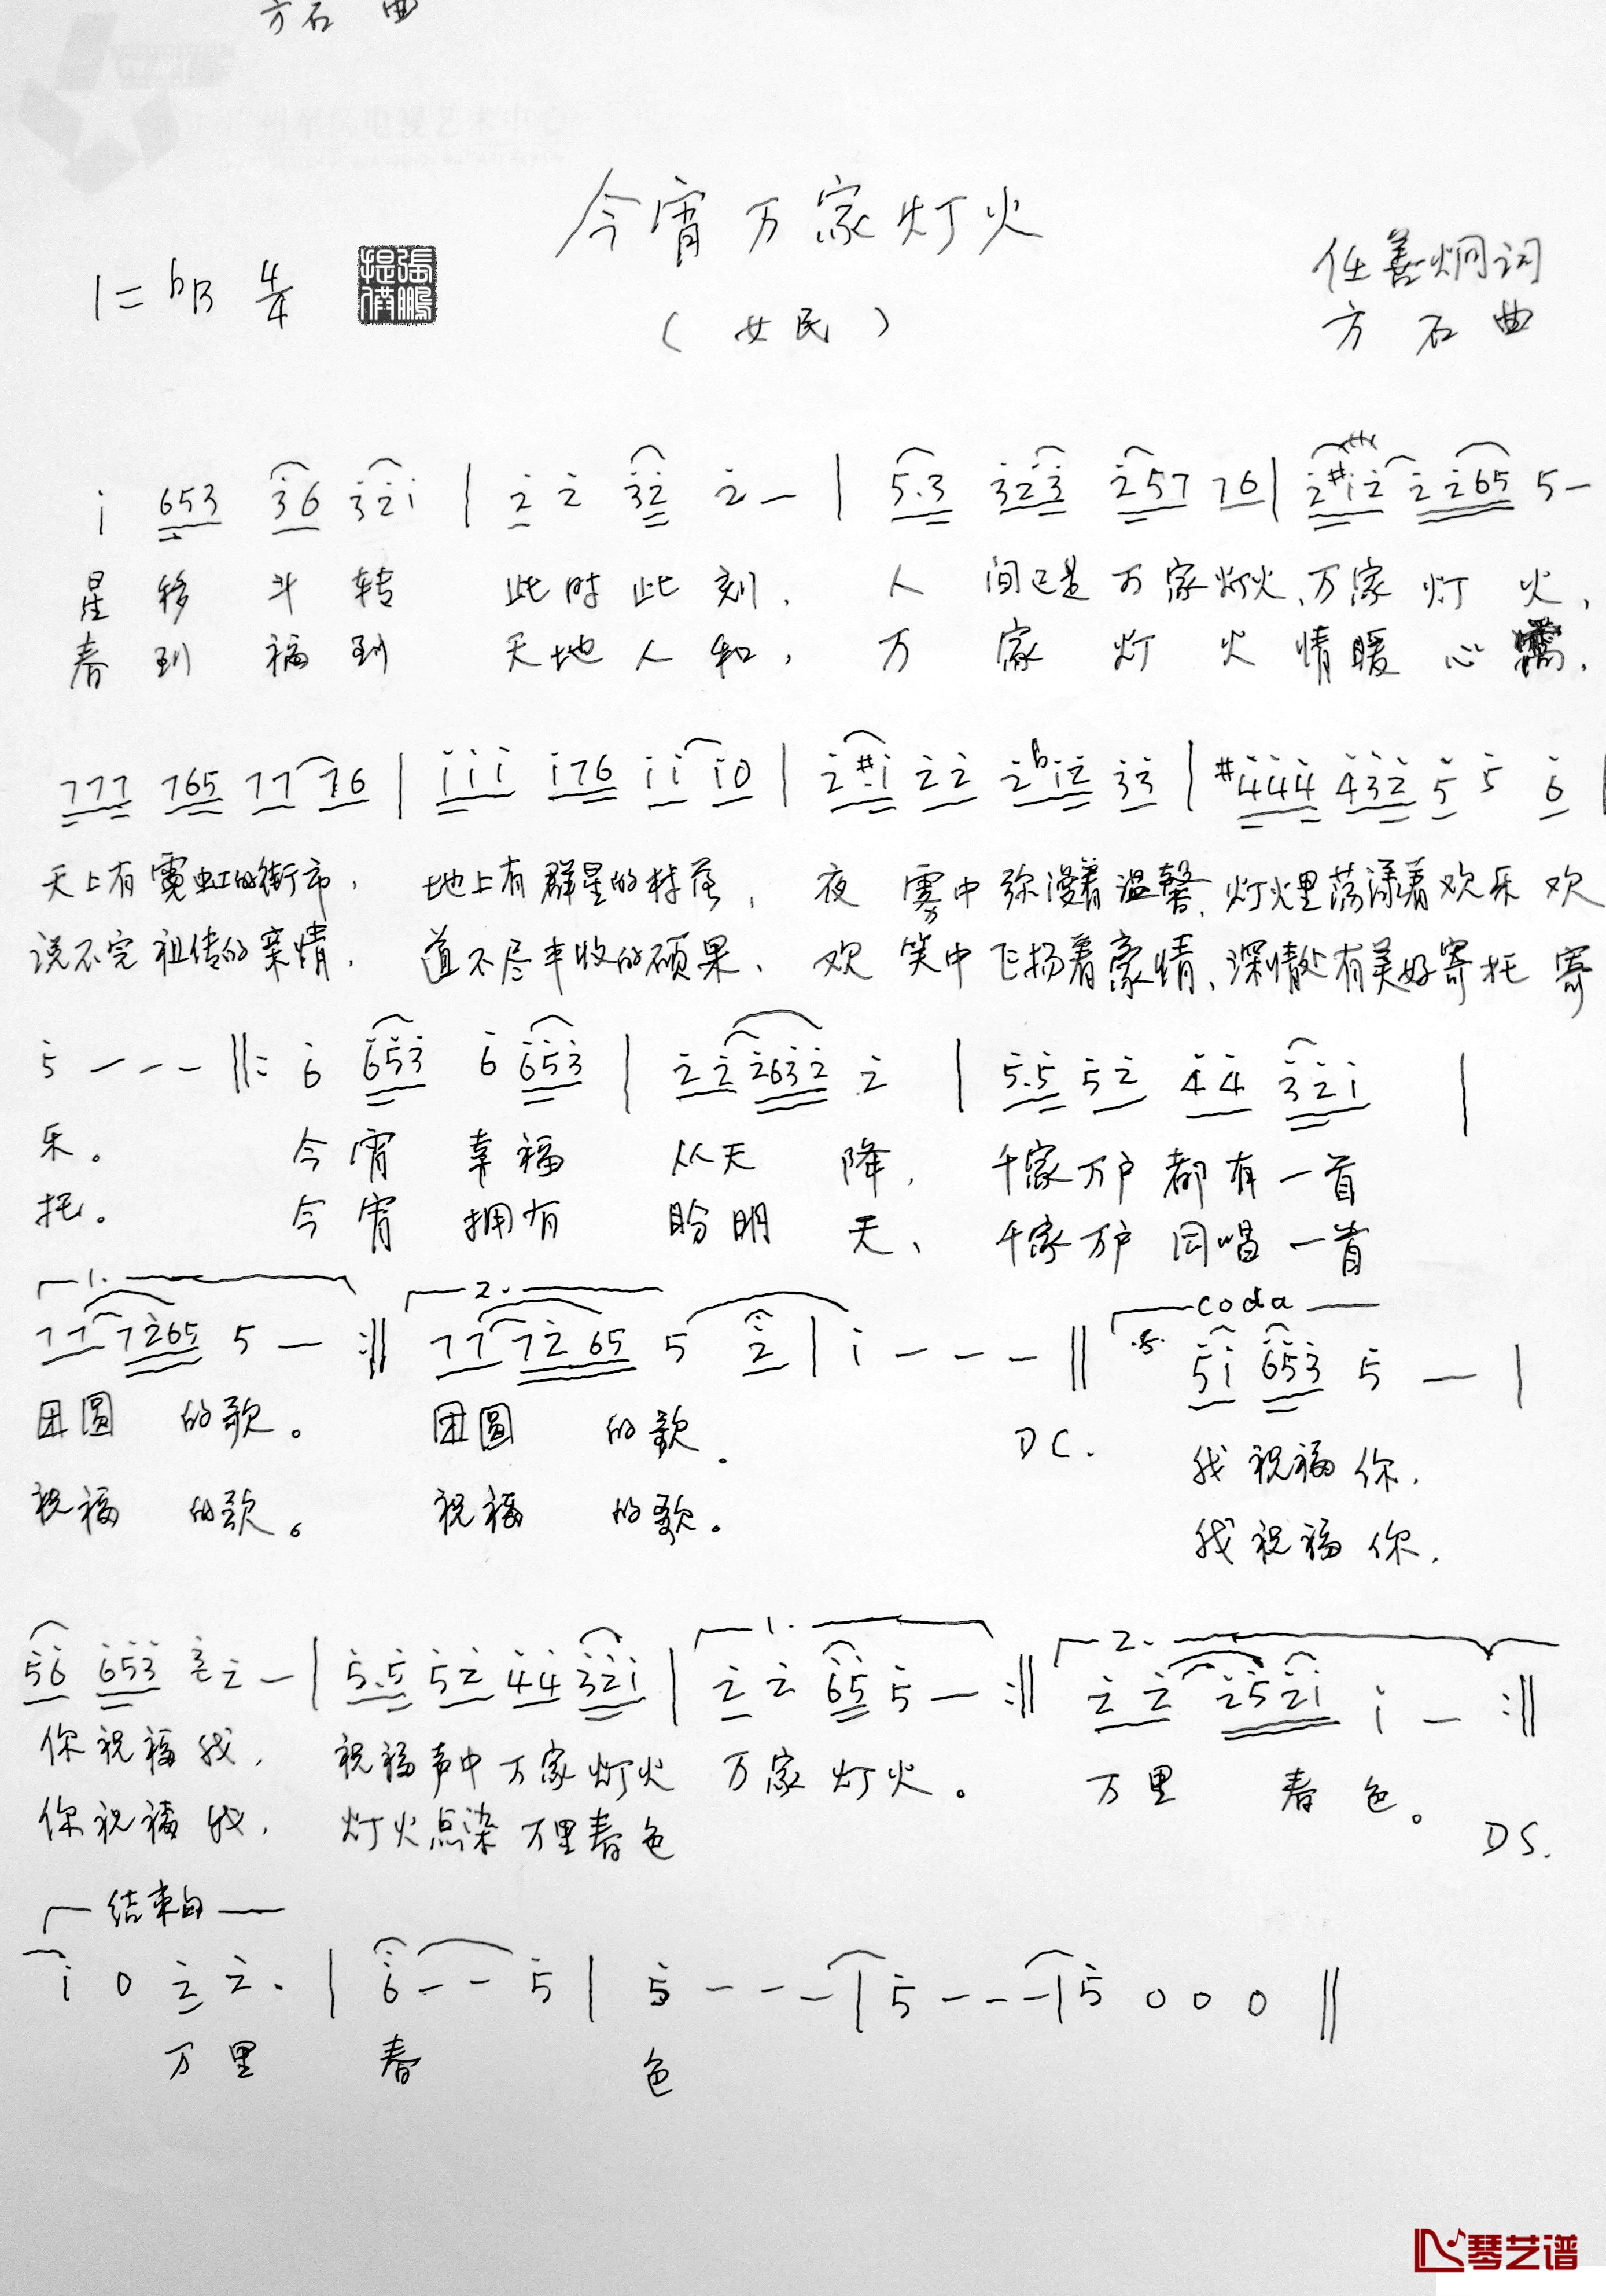 方石 曲
今宵万家灯火
1=bB 4/4
任善炯词
(女民)
方石曲
i 653 36 32i | 2 2 32 2 — | 5.3 323 257 76 | 2#i2 2265 5 —
星移斗转 此时此刻, 人间已是万家灯火、万家灯火,
春到福到 天地人和, 万家灯火情暖心窝,
777 765 77 76 | iii i76 ii i0 | 2#.i 22 2bi2 33 | #444 432 5 5 6 |
天上有霓虹的街市, 地上有群星的村落, 夜雾中弥漫着温馨、灯火里荡漾着欢乐 欢
说不完祖传的亲情, 道不尽丰收的硕果、 欢笑中飞扬着豪情、深情处有美好寄托 寄
5 — — — ‖: 6 653 6 653 | 22 2632 2 | 5.5 52 44 32i |
乐。 今宵幸福从天降, 千家万户都有一首
托。 今宵拥有盼明天、 千家万户同唱一首
1. 2. coda
77 7265 5 — :‖ 77 7265 5 2 | i — — — ‖ 5i 653 5 — |
团圆的歌。 团圆的歌。 DC. 我祝福你,
祝福的歌。 祝福的歌。 我祝福你,
1. 2.
56 653 2 — | 5.5 52 44 32i | 2 2 65 5 — :‖ 2 2 252i i — :‖
你祝福我, 祝福声中万家灯火 万家灯火。 万里春色。
你祝福我, 灯火点染万里春色 DS.
结束句
i 0 2 2. | 6 — — 5 | 5 — — — | 5 — — — | 5 0 0 0 ‖
万里 春 色
琴艺谱